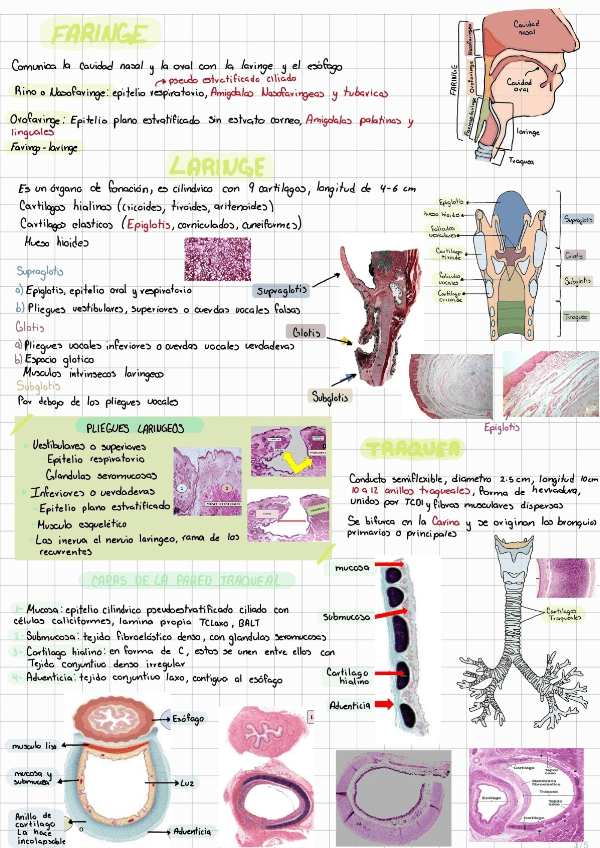 FARINGE
Comunica la cavidad nasal y la oral con la laringe y el esófago
pseudo estratificado ciliado
Rino o Nasofaringe: epitelio respiratorio, Amigdalas Nasofaringeas y tubaricas
Orofaringe: Epitelio plano estratificado sin estrato corneo, Amigdalas palatinas y
linguales
Faringo-laringe
Cavidad
nasal
Cavidad
oral
FARINGE
Nasofaringe
Orofaringe
laringe
Traquea
LARINGE
Es un órgano de fonación, es cilindrico con 9 cartilagos, longitud de 4-6 cm
Cartilagos hialinos (cricoides, tiroides, aritenoides)
Cartilagos elasticos (Epiglotis, corniculados, cuneiformes)
Hueso hioides
Supraglotis
a) Epiglotis, epitelio oral y respiratorio
b) Pliegues vestibulares, superiores o cuerdas vocales falsas
Glotis
a) Pliegues vocales inferiores o cuerdas vocales verdaderas
b) Espacio glotico
Musculos intrinsecos laringeos
Subglotis
Por debajo de los pliegues vocales
Supraglotis
Glotis
Subglotis
Epiglotis
Hueso hioides
Foliculos
vestibulares
Cartilago
tiroide
Foliculos
vocales
Cartilago
cricoide
Supraglotis
Glotis
Subglotis
Traquea
Epiglotis
PLIEGUES LARINGEOS
Vestibulares o superiores
Epitelio respiratorio
Glandulas seromucosas
Inferiores o verdaderas
Epitelio plano estratificado
Musculo esquelético
Las inerva el nervio laringeo, rama de los
recurrentes
TRAQUEA
Conducto semiflexible, diametro 2.5 cm, longitud 10cm
10 a 12 anillos traqueales, forma de herradura,
unidos por TCDI y fibras musculares dispersas
Se bifurca en la Carina y se originan los bronquios
primarios o principales
Cartilagos
Traqueales
CAPAS DE LA PARED TRAQUEAL
1- Mucosa: epitelio cilindrico pseudoestratificado ciliado con
células caliciformes, lamina propia TCLaxo, BALT
2- Submucosa: tejido fibroelástico denso, con glandulas seromucosas
3- Cartilago hialino: en forma de C, estos se unen entre ellos con
Tejido conjuntivo denso irregular
4- Adventicia: tejido conjuntivo laxo, contiguo al esófago
mucosa
Submucosa
Cartilago
hialino
Adventicia
Esófago
musculo liso
mucosa y
submucosa
Luz
Anillo de
cartilago
La hace
incolapsable
Adventicia
Cartilago
Esófago
Tráquea
Membrana
fibroelástica
Cartilago